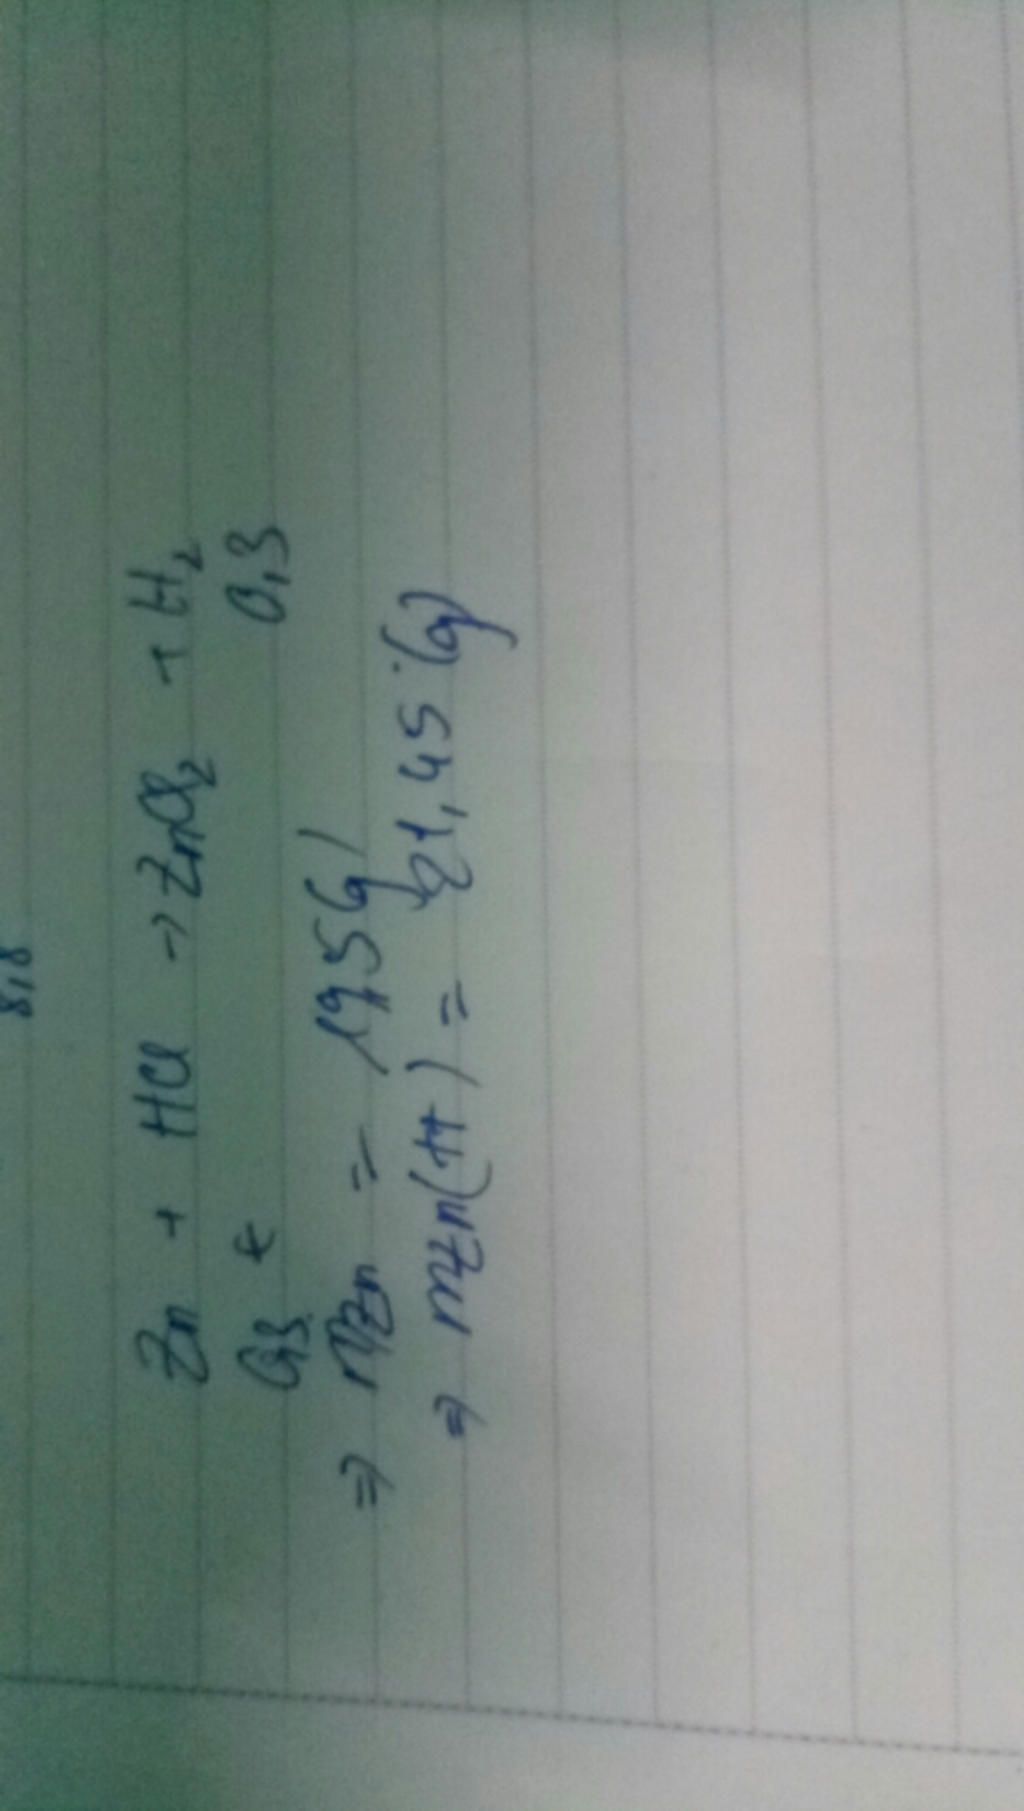 8,8
Zn + HCl → ZnCl₂ + H₂
0,3 0,3
⇒ mZn = 19,5(g)
⇒ mZn(tt) = 21,45 (g)